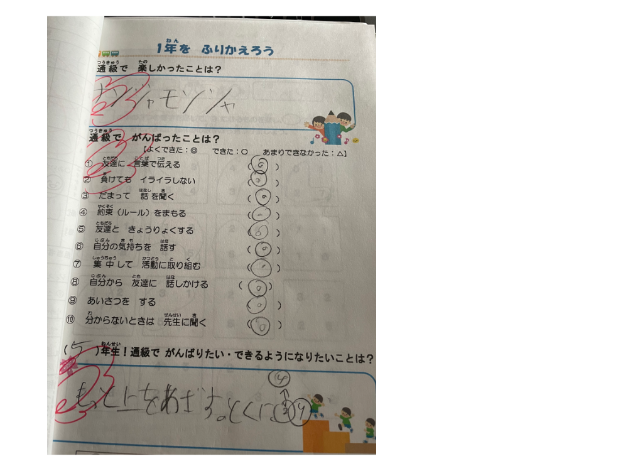 1年を ふりかえろう
通級で 楽しかったことは？
ンジャモンジャ
通級で がんばったことは？
【よくできた：◎ できた：○ あまりできなかった：△】
① 友達に 言葉で伝える
② 負けても イライラしない
③ だまって 話を聞く
④ 約束（ルール）をまもる
⑤ 友達と きょうりょくする
⑥ 自分の気持ちを 話す
⑦ 集中して 活動に取り組む
⑧ 自分から 友達に 話しかける
⑨ あいさつを する
⑩ 分からないときは 先生に聞く
（5）年生！通級で がんばりたい・できるようになりたいことは？
もっと上をめざす。とくに